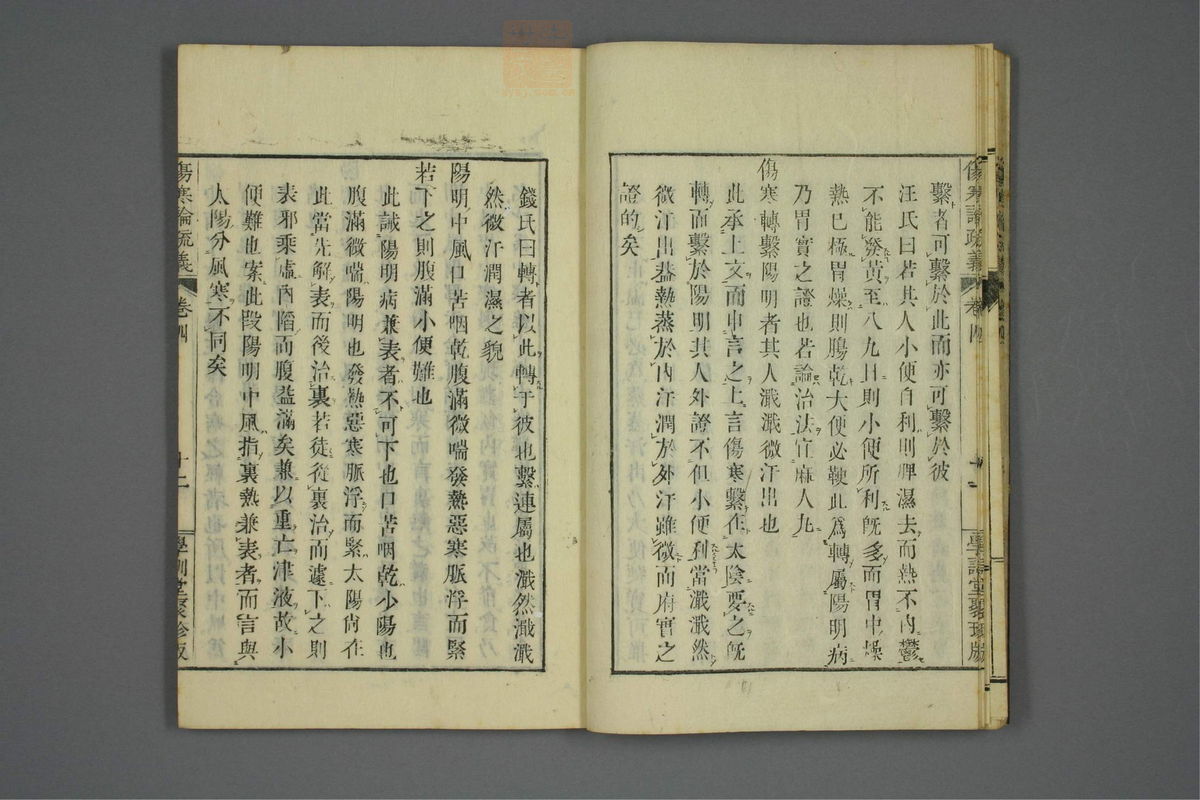 傷寒論疏義 卷四 十一 學訓堂聚珍版
繫者可繫於此而亦可繫於彼
汪氏曰若其人小便自利則脾濕去而熱不內鬱
不能發黃至八九日則小便所利既多而胃中燥
熱已極胃燥則腸乾大便必鞕此爲轉屬陽明病
乃胃實之證也若論治法宜麻人丸
傷寒轉繫陽明者其人濈濈微汗出也
此承上文而申言之上言傷寒繫在太陰要之既
轉而繫於陽明其人外證不但小便利當濈濈然
微汗出益熱蒸於內汗潤於外汗雖微而府實之
證的矣
錢氏曰轉者以此轉于彼也繫連屬也濈然濈濈
然微汗潤濕之貌
陽明中風口苦咽乾腹滿微喘發熱惡寒脈浮而緊
若下之則腹滿小便難也
此誡陽明病兼表者不可下也口苦咽乾少陽也
腹滿微喘陽明也發熱惡寒脈浮而緊太陽尚在
此當先解表而後治裏若徒從裏治而遽下之則
表邪乘虛內陷而腹益滿矣兼以重亡津液故小
便難也案此段陽明中風指裏熱兼表者而言與
太陽分風寒不同矣
傷寒論疏義 卷四 十二 學訓堂聚珍版